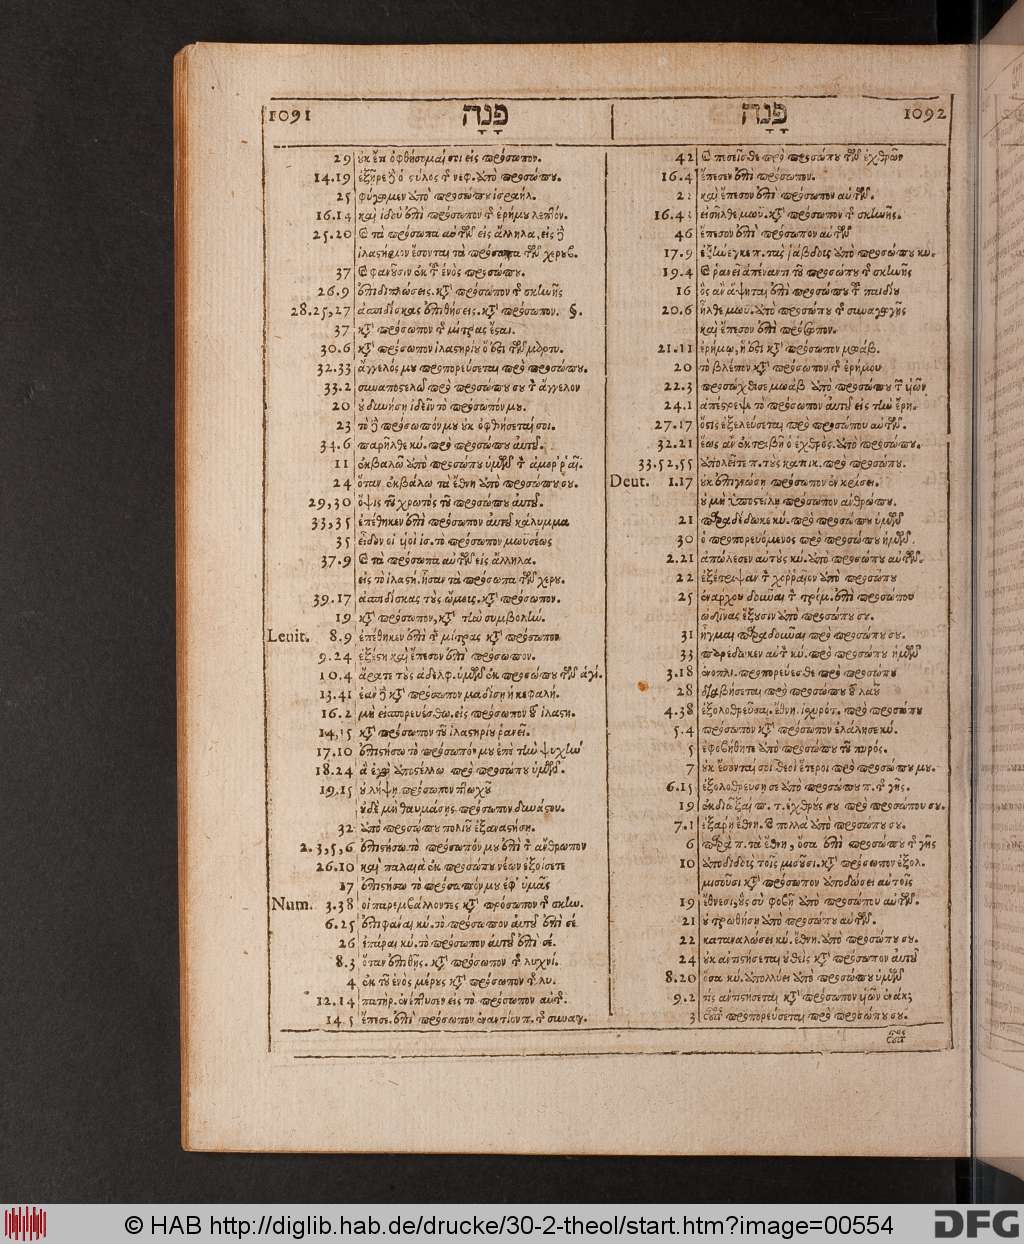 1091 פָּנָה
29 ὐκ ἔπ ὀφθήσομαί σοι εἰς πρόσωπον.
14.19 ἐξῆρε δὲ ὁ ςύλος τ νεφ. ὑπὸ προσώπου.
25 φύγωμεν ὑπὸ προσώπου ἰσραήλ.
16.14 καὶ ἰδοὺ ἐπὶ πρόσωπον τ ἐρήμου λεπτὸν.
25.20 τὰ πρόσωπα αὐτῶν εἰς ἄλληλα. εἰς
ἱλαςήριον ἔσονται τὰ πρόσωπα τῶν χερυβ.
37 φανοῦσιν ἐκ τ ἑνὸς προσώπου.
26.9 ἐπιδιπλώσεις. κτ πρόσωπον τ σκηνῆς
28.25,27 ἀσπιδίσκας ἐπιθήσεις. κτ πρόσωπον. §.
37 κτ πρόσωπον τ μίτρας ἔςαι.
30.6 κτ πρόσωπον ἱλαςηρίου ὅ ἐςι τῶν μαρτυ.
32.33 ἄγγελός μου προπορεύσεται πρὸ προσώπου.
33.2 συναποςελῶ πρὸ προσώπου σου τ ἄγγελον
20 οὐ δυνήσῃ ἰδεῖν τὸ πρόσωπόν μου.
23 τὸ δὲ πρόσωπόν μου οὐκ ὀφθήσεταί σοι.
34.6 παρῆλθε κύ. πρὸ προσώπου αὐτοῦ.
11 ἐκβαλῶ ὑπὸ προσώπου ὑμῶν τ ἀμορραῖ.
24 ὅταν ἐκβάλω τὰ ἔθνη ὑπὸ προσώπου σου.
29,30 ὄψις τοῦ χρωτὸς τοῦ προσώπου αὐτοῦ.
33,35 ἐπέθηκεν ἐπὶ πρόσωπον αὐτοῦ κάλυμμα
35 εἶδον οἱ υἱοὶ ἰσ. τὸ πρόσωπον μωϋσέως
37.9 τὰ πρόσωπα αὐτῶν εἰς ἄλληλα.
εἰς τὸ ἱλαςή. ἦσαν τὰ πρόσωπα τῶν χερου.
39.17 ἀσπιδίσκας τοὺς ὤμοις. κτ πρόσωπον.
19 κτ πρόσωπον, κτ τὴν συμβολήν.
Leuit. 8.9 ἐπέθηκεν ἐπὶ τ μίτρας κτ πρόσωπον
9.24 ἐξέςη καὶ ἔπεσον ἐπὶ πρόσωπον.
10.4 ἄρατε τοὺς ἀδελφ. ὑμῶν ἐκ προσώπου τῶν ἁγί.
13.41 ἐὰν δὲ κτ πρόσωπον μαδίσῃ ἡ κεφαλή.
16.2 μὴ εἰσπορευέσθω. εἰς πρόσωπον τοῦ ἱλαςη.
14,15 κτ πρόσωπον τοῦ ἱλαςηρίου ῥανεῖ.
17.10 ἐπιςήσω τὸ πρόσωπόν μου ἐπὶ τὴν ψυχὴν
18.24 ἃ ἐγὼ ἀποςέλλω πρὸ προσώπου ὑμῶν.
19,15 οὐ λήψῃ πρόσωπον πτωχοῦ
οὐδὲ μὴ θαυμάσῃς πρόσωπον δυνάςου.
32 ἀπὸ προσώπου πολιοῦ ἐξαναςήσῃ.
2.3,5,6 ἐπιςήσω τὸ πρόσωπόν μου ἐπὶ τ ἄνθρωπον
26.10 καὶ παλαιὰ ἐκ προσώπου νέων ἐξοίσετε
17 ἐπιςήσω τὸ πρόσωπόν μου ἐφ' ὑμᾶς
Num. 3.38 οἱ παρεμβάλλοντες κτ πρόσωπον τ σκην.
6.25 ἐπιφάναι κύ. τὸ πρόσωπον αὐτοῦ ἐπὶ σέ
26 ἐπάραι κύ. τὸ πρόσωπον αὐτοῦ ἐπὶ σέ.
8.3 ὅταν ἐπιθῇς. κτ πρόσωπον τ λυχνί.
4 ἐκ τοῦ ἑνὸς μέρους κτ πρόσωπον τ λυ.
12.14 πατὴρ. ἐνέπτυσεν εἰς τὸ πρόσωπον αὐτ.
14.5 ἔπεσε. ἐπὶ πρόσωπον ἐναντίον π. τ συναγ.
פָּנָה 1092
42 πεσεῖσθε πρὸ προσώπου τῶν ἐχθρῶν
16.4 ἔπεσεν ἐπὶ πρόσωπον.
καὶ ἔπεσον ἐπὶ πρόσωπον αὐτῶν.
16.43 εἰσῆλθε μωϋ. κτ πρόσωπον τ σκηνῆς.
46 ἔπεσον ἐπὶ πρόσωπον αὐτῶν
17.9 ἐξήνεγκε π. τὰς ῥάβδους ἀπὸ προσώπου κυ.
19.4 ῥανεῖ ἀπέναντι τοῦ προσώπου τ σκηνῆς
16 ὃς ἂν ἅψηται ἐπὶ προσώπου τοῦ πεδίου
20.6 ἦλθε μωϋ. ἀπὸ προσώπου τ συναγωγῆς
καὶ ἔπεσον ἐπὶ πρόσωπον.
21.11 ἐρήμῳ, ἥ ἐςι κτ πρόσωπον μωάβ.
20 τὸ βλέπον κτ πρόσωπον τ ἐρήμου
22.3 προσώχθισε μωὰβ ἀπὸ προσώπου τ υἱῶν
24.1 ἀπέςρεψε τὸ πρόσωπον αὐτοῦ εἰς τὴν ἔρη.
27.17 ὅςις ἐξελεύσεται πρὸ προσώπου αὐτῶν.
32.21 ἕως ἂν ἐκτριβῇ ὁ ἐχθρὸς. ἀπὸ προσώπου.
33.52,55 ἀπολεῖτε π. τοὺς κατοικ. πρὸ προσώπου.
Deut. 1.17 οὐκ ἐπιγνώσῃ πρόσωπον ἐν κρίσει.
οὐ μὴ ὑποςείλῃ πρόσωπον ἀνθρώπου.
21 παραδέδωκε κύ. πρὸ προσώπου ὑμῶν
30 ὁ προπορευόμενος πρὸ προσώπου ἡμῶν.
2.21 ἀπώλεσεν αὐτοὺς κύ. ἀπὸ προσώπου αὐτῶν.
22 ἐξέτριψαν τ χορραῖον ἀπὸ προσώπου
25 ἐνάρχου δοῦναι τ τρόμ. ἐπὶ πρόσωπον
ὠδῖνας ἕξουσιν ἀπὸ προσώπου σου.
31 ἦγμαι παραδοῦναι πρὸ προσώπου σου.
33 παρέδωκεν αὐτ κύ. πρὸ προσώπου ἡμῶν
3.18 ἐνοπλι. προπορεύεσθε πρὸ προσώπου
28 διαβήσεται πρὸ προσώπου τοῦ λαοῦ
4.38 ἐξολοθρεῦσαι. ἔθνη. ἰσχυρότ. πρὸ προσώπου
5.4 πρόσωπον κτ πρόσωπον ἐλάλησε κύ.
5 ἐφοβήθητε ἀπὸ προσώπου τοῦ πυρός.
7 οὐκ ἔσονταί σοι θεοὶ ἕτεροι πρὸ προσώπου μου.
6.15 ἐξολοθρεύσῃ σε ἀπὸ προσώπου π. τ γῆς.
19 ἐκδιῶξαι π. τ. ἐχθρούς σου πρὸ προσώπου σου.
7.1 ἐξαρῇ ἔθνη. πολλὰ ἀπὸ προσώπου σου.
6 παρὰ π. τὰ ἔθνη, ὅσα ἐπὶ προσώπου τ γῆς
10 ἀποδιδοὺς τοῖς μισοῦσι. κτ πρόσωπον ἐξολ.
μισοῦσι κτ πρόσωπον ἀποδώσει αὐτοῖς
19 ἔθνεσι, οὓς σὺ φοβῇ ἀπὸ προσώπου αὐτῶν.
21 οὐ τρωθήσῃ ἀπὸ προσώπου αὐτῶν.
22 καταναλώσει κύ. ἔθνη. ἀπὸ προσώπου σου.
24 οὐκ ἀντιςήσεται οὐθεὶς κτ πρόσωπον αὐτοῦ
8.20 ὅσα κύ. ἀπολλύει ἀπὸ προσώπου ὑμῶν
9.2 τίς ἀντιςήσεται κτ πρόσωπον υἱῶν ἐνάκ;
3 οὗτος προπορεύσεται πρὸ προσώπου σου.
© HAB http://diglib.hab.de/drucke/30-2-theol/start.htm?image=00554 DFG